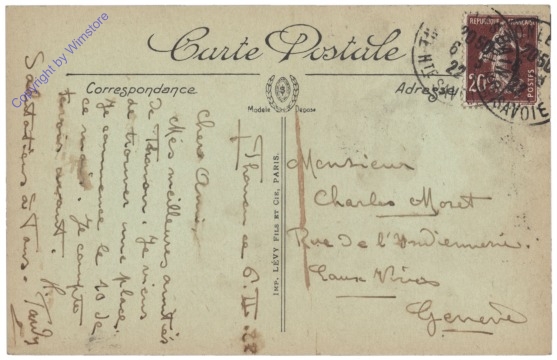 Carte Postale
Correspondance
Adresse
Modèle Déposé
IMP. LÉVY FILS ET CIE, PARIS.
RÉPUBLIQUE FRANÇAISE
20c
POSTES
Thonon ce 6. II. 22
Cher Ami,
Mes meilleures amitiés
de Thonon. Je viens
de trouver une place.
Je commence le 10 de
ce mois. Je compte
avant.
Salutations à Tous.
Monsieur
Charles Moret
Rue de l'Indiennerie.
Eaux Vives
Genève
Copyright by Wimstore